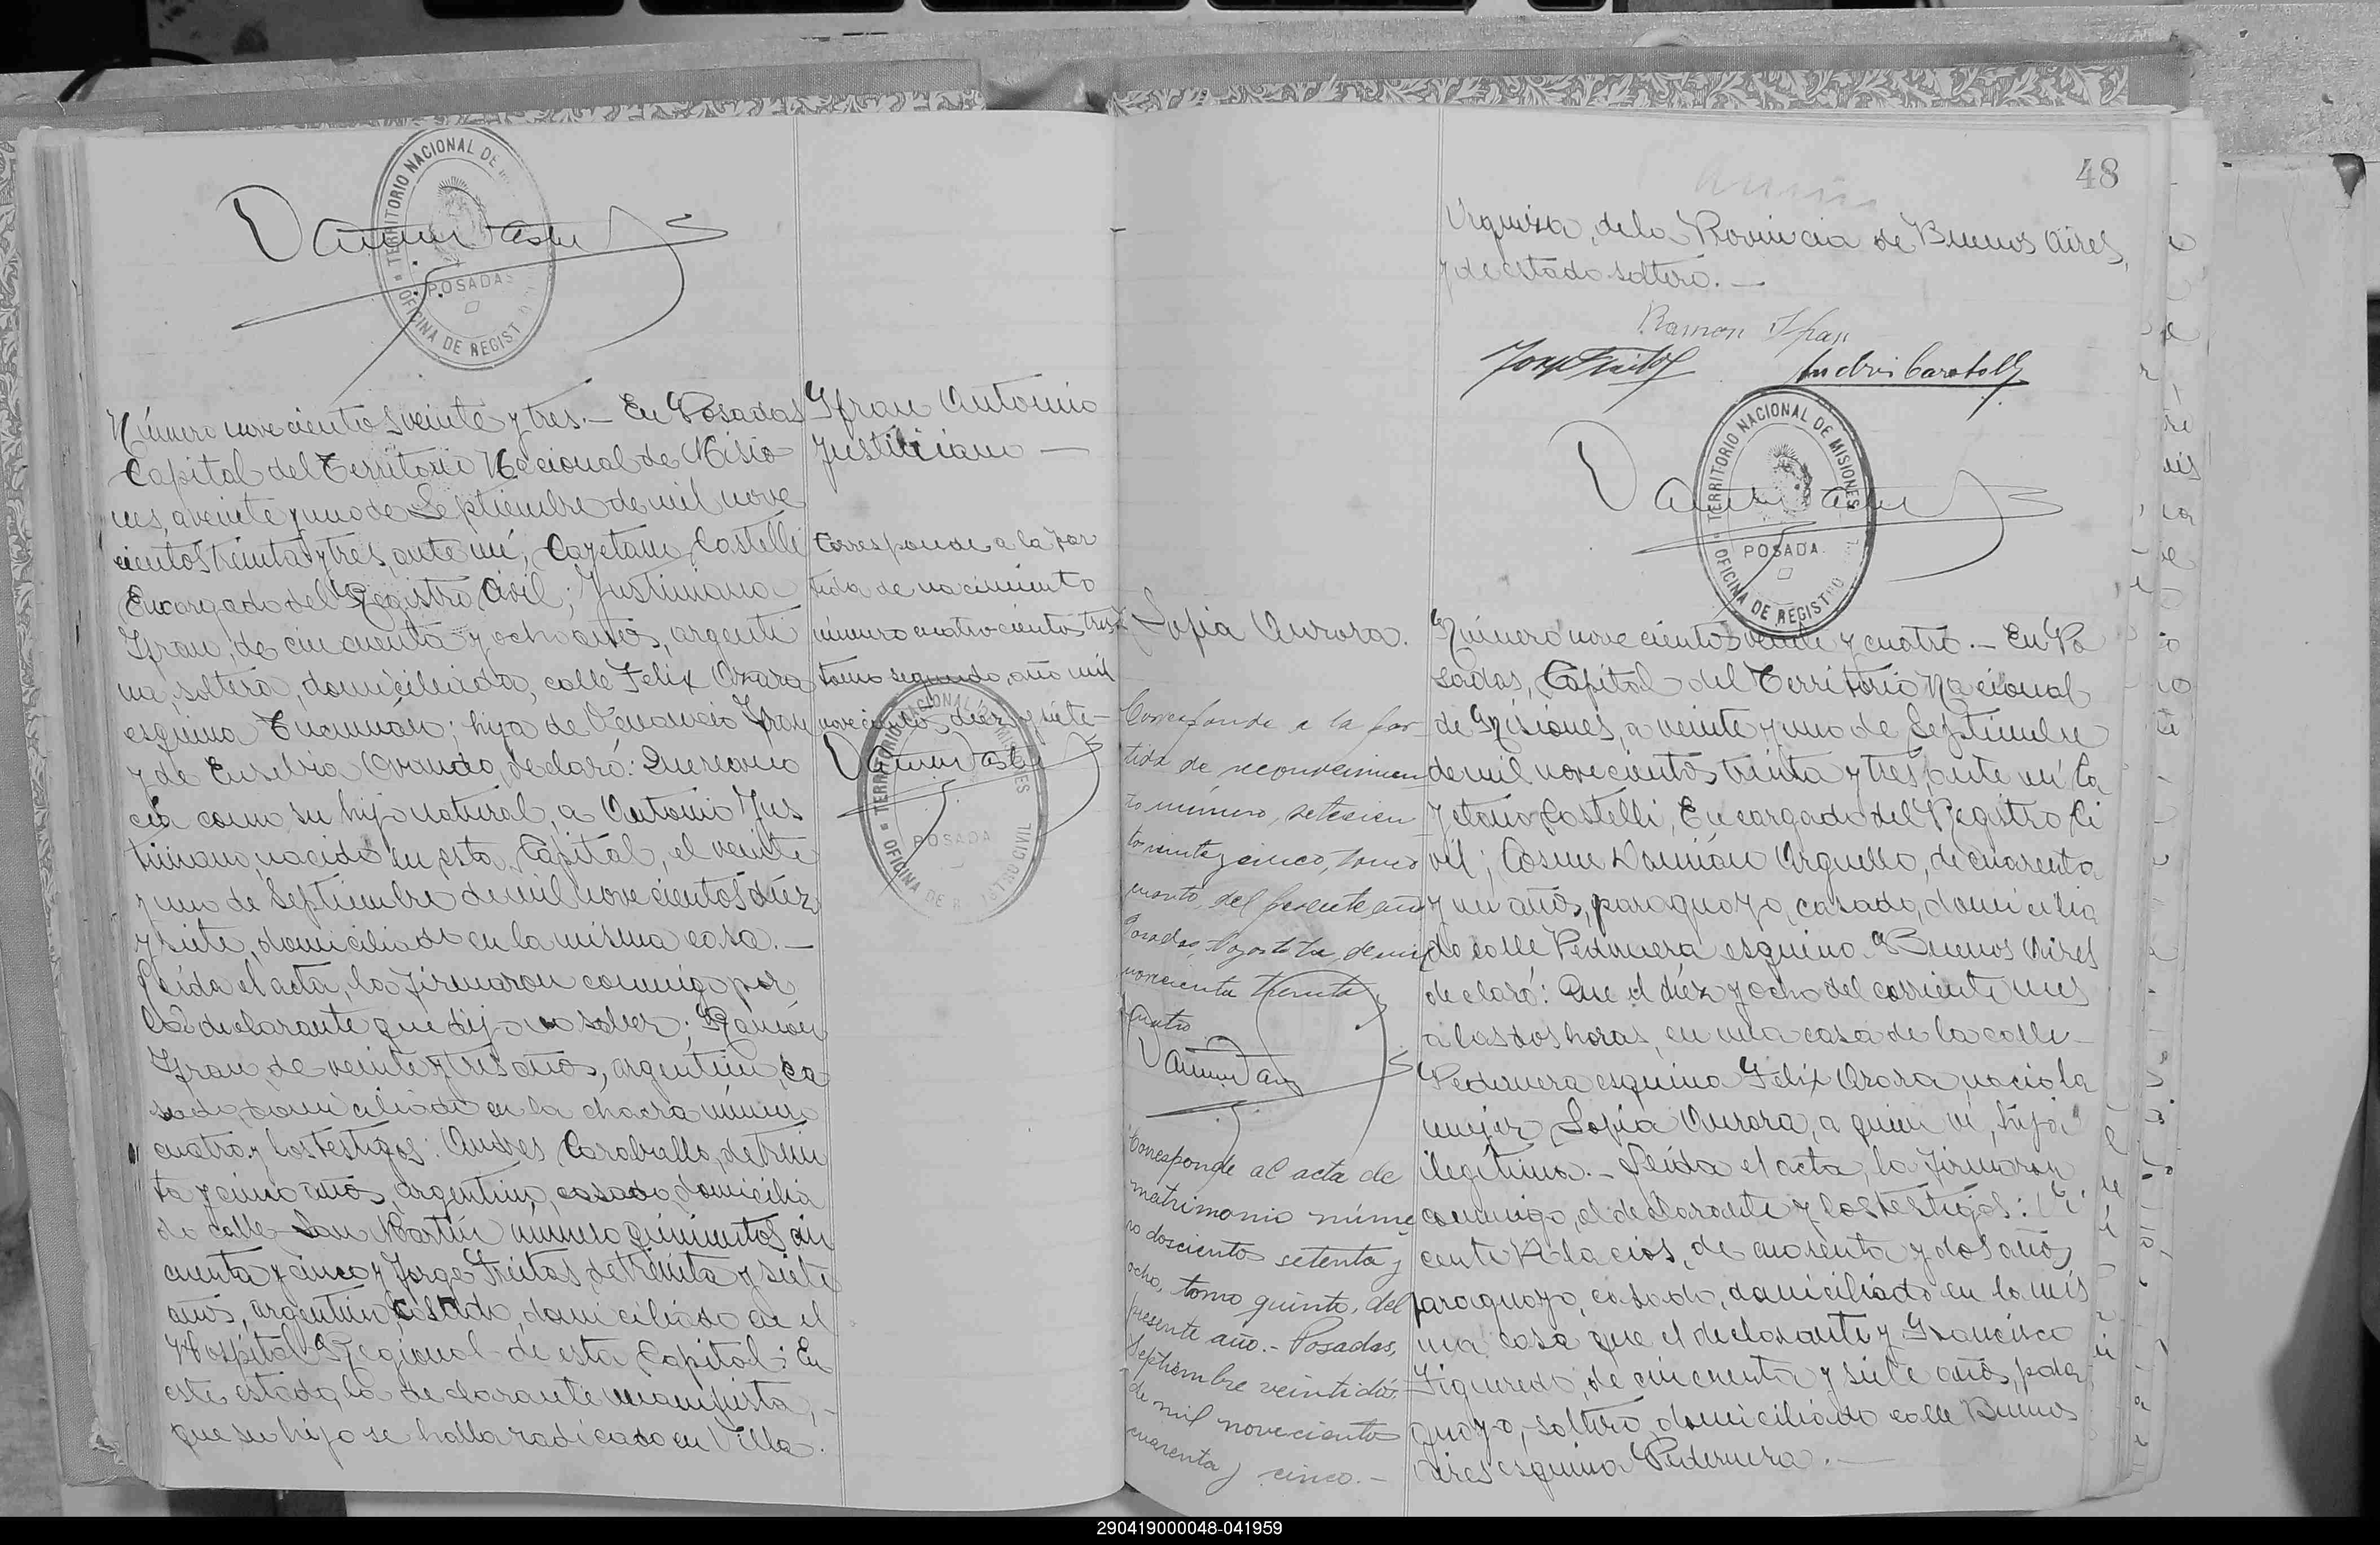 TERRITORIO NACIONAL DE
POSADAS
OFICINA DE REGIST
Número novecientos veinte y tres.- En Posadas
Capital del Territorio Nacional de Misio
nes, a veinte y uno de Septiembre de mil nove
cientos treinta y tres, ante mí, Cayetano Castelli
Encargado del Registro Civil; Justiniana
Ifran, de cincuenta y ocho años, argenti
na, soltera, domiciliada, calle Felix Azara
esquina Tucumán; hija de Venancio Ifran
y de Eusebia Ovando, declaró: Que recono
cía como su hijo natural, a Antonio Jus
tiniano, nacido en esta Capital, el veinte
y uno de Septiembre de mil novecientos diez
y siete, domiciliado en la misma casa.-
Leída el acta, la firmaron conmigo por
la declarante que dijo no saber; Ramón
Ifran, de veinte y tres años, argentino, ca
sado, domiciliado en la chacra número
cuatro y los testigos: Andres Caraballo, de trein
ta y cinco años, argentino, casado, domicilia
do calle San Martín número quinientos cin
cuenta y cinco y Jorge Freitas, de treinta y siete
años, argentino, casado, domiciliado en el
Hospital Regional de esta Capital: En
este estado, la declarante manifiesta,-
que su hijo se halla radicado en Villa
Ifran Antonio
Justiniano —
Corresponde a la par
tida de nacimiento
número cuatrocientos tres
tomo segundo, año mil
novecientos diez y siete-
TERRITORIO NACIONAL DE MISIONES
POSADA
OFICINA DE REGISTRO CIVIL
48
Urquiza, de la Provincia de Buenos Aires,
y de estado soltero.—
Ramon Ifran
TERRITORIO NACIONAL DE MISIONES
POSADA
OFICINA DE REGISTRO
Sofia Aurora.
Corresponde a la par-
tida de reconocimien
to número, setecien
to veinte y cinco, tomo
cuarto, del presente año
Posadas, Agosto de mil
novecientos treinta y
cuatro
Corresponde al acta de
matrimonio núme
ro doscientos setenta y
ocho, tomo quinto, del
presente año.- Posadas,
Septiembre veintidós
de mil novecientos
cuarenta y cinco.-
Número novecientos veinte y cuatro.- En Po
sadas, Capital del Territorio Nacional
de Misiones, a veinte y uno de Septiembre
de mil novecientos treinta y tres, ante mí Ca
yetano Castelli, Encargado del Registro Ci
vil; Cosme Damián Arguello, de cuarenta
y un años, paraguayo, casado, domicilia
do calle Pedernera esquina Buenos Aires
declaró: Que el diez y ocho del corriente mes
a las dos horas, en una casa de la calle-
Pedernera esquina Felix Azara, nació la
mujer Sofia Aurora, a quien vi, hija
ilegítima.- Leída el acta, la firmaron
conmigo, el declarante y los testigos: Vi
cente Palacios, de cuarenta y dos años
paraguayo, casado, domiciliado en la mis
ma casa que el declarante y Francisco
Figueredo, de cincuenta y siete años, para
guayo, soltero, domiciliado calle Buenos
Aires esquina Pedernera.—
290419000048-041959